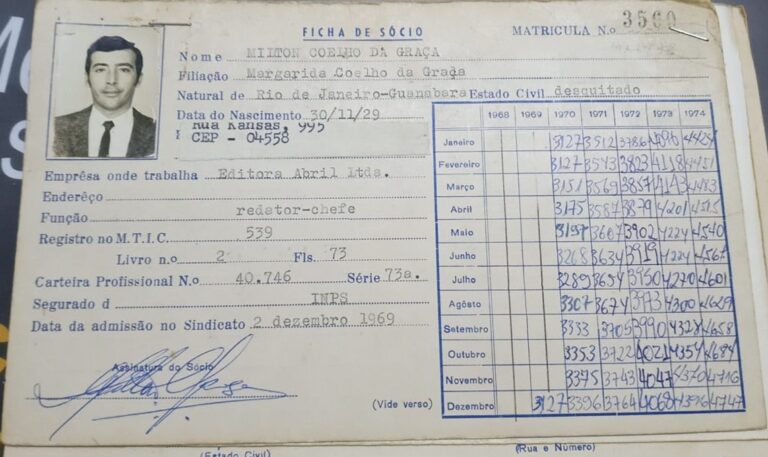 FICHA DE SÓCIO
MATRICULA N.o 3560
Nome MILTON COELHO DA GRAÇA
Filiação Margarida Coelho da Graça
Natural de Rio de Janeiro-Guanabara Estado Civil desquitado
Data do Nascimento 30/11/29
Rua Kansas, 995
CEP - 04558
Emprêsa onde trabalha Editora Abril ltda.
Enderêço
Função redator-chefe
Registro no M.T.I.C. 539
Livro n.o 2 Fls. 73
Carteira Profissional N.o 40.746 Série 73a.
Segurado d INPS
Data da admissão no Sindicato 2 dezembro 1969
Assinatura do Sócio
(Vide verso)
1968 1969 1970 1971 1972 1973 1974
Janeiro 3127 3512 3786 4096 4424
Fevereiro 3127 3543 3823 4118 4451
Março 3151 3569 3857 4143 4483
Abril 3175 3587 3879 4201 4515
Maio 3197 3607 3902 4224 4540
Junho 3268 3634 3919 4224 4567
Julho 3289 3654 3950 4270 4601
Agôsto 3307 3674 3973 4300 4629
Setembro 3333 3705 3990 4328 4658
Outubro 3353 3722 4021 4354 4684
Novembro 3375 3743 4047 4370 4716
Dezembro 3127 3396 3764 4068 4396 4747
(Estado Civil)
(Rua e Número)